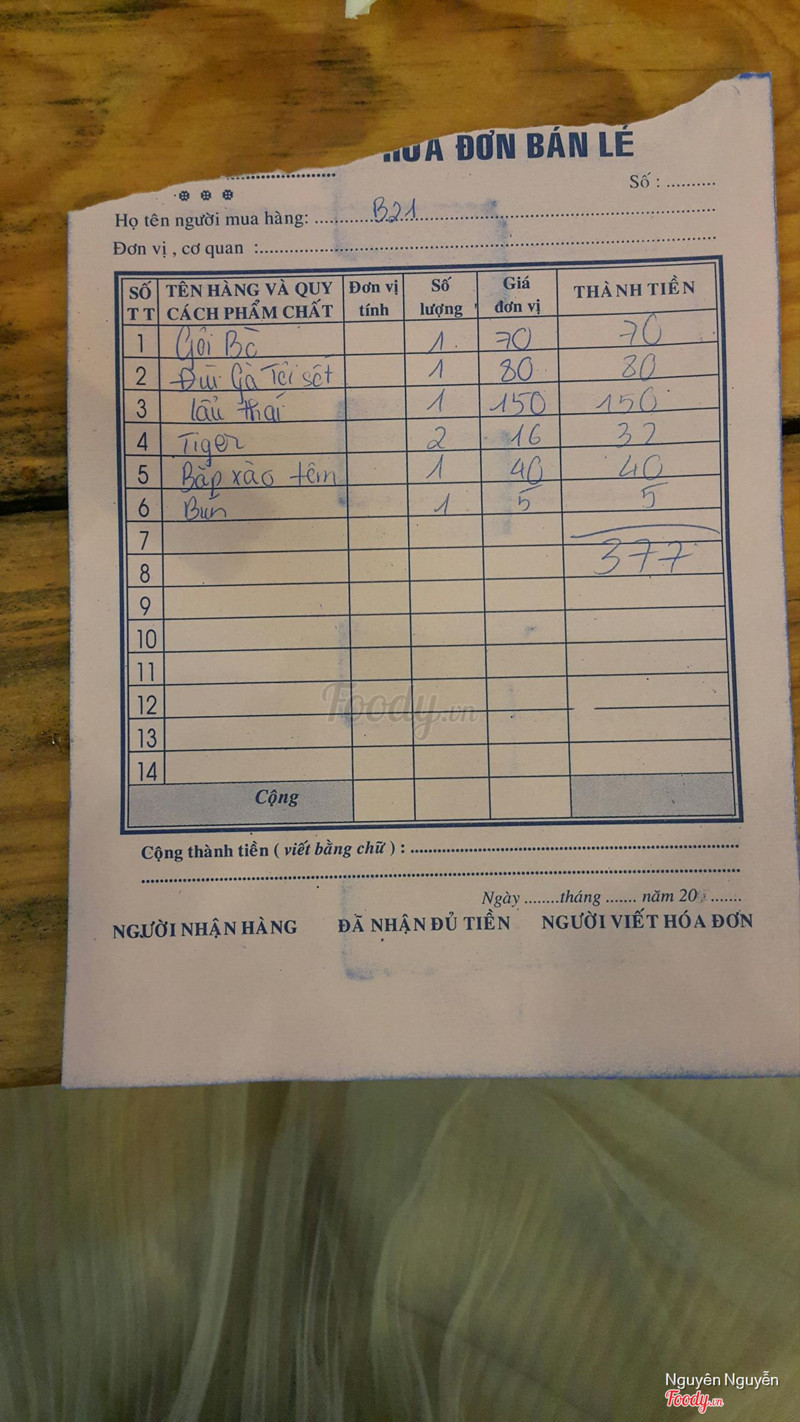 HÓA ĐƠN BÁN LẺ
Số : ..........
Họ tên người mua hàng: B21
Đơn vị , cơ quan :
SỐ TT TÊN HÀNG VÀ QUY CÁCH PHẨM CHẤT Đơn vị tính Số lượng Giá đơn vị THÀNH TIỀN
1 Gỏi Bò 1 70 70
2 Đùi Gà Tỏi sốt 1 80 80
3 lẩu thái 1 150 150
4 Tiger 2 16 32
5 Bắp xào tém 1 40 40
6 Bún 1 5 5
7
8 377
9
10
11
12
Foody.vn
13
14
Cộng
Cộng thành tiền ( viết bằng chữ ) :
Ngày ........tháng ....... năm 20 .......
NGƯỜI NHẬN HÀNG ĐÃ NHẬN ĐỦ TIỀN NGƯỜI VIẾT HÓA ĐƠN
Nguyên Nguyễn
Foody.vn